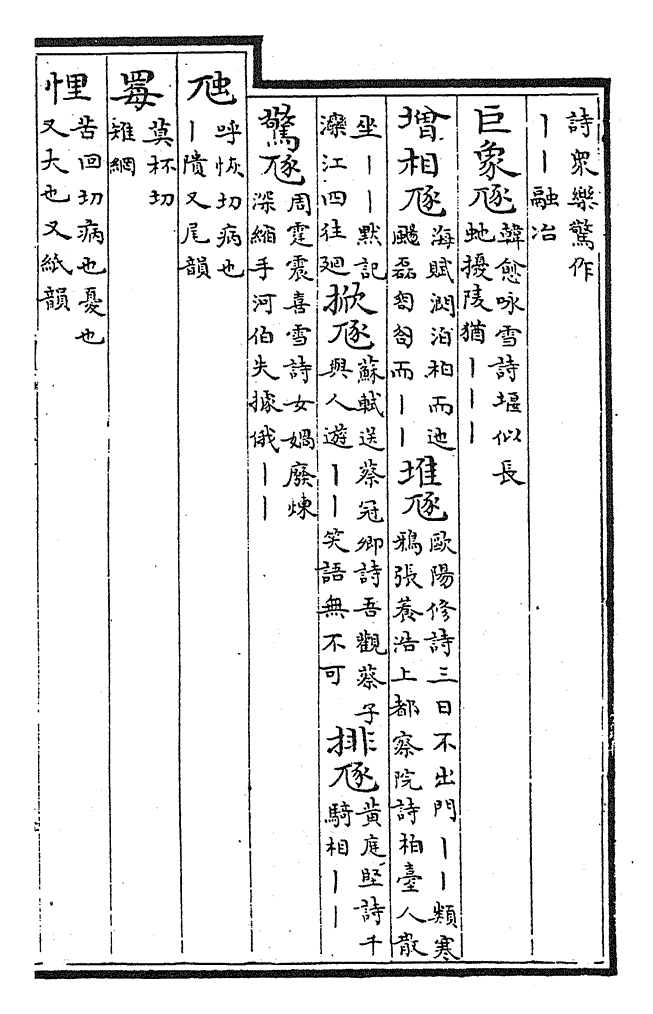 詩衆樂驚作
丨丨融冶
巨象豗
韓愈咏雪詩堰似長
虵擾陵猶丨丨丨
增相豗
海賦潤泊柏而迆
颺磊匒匌而丨丨
堆豗
歐陽修詩三日不出門丨丨類寒
鴉張養浩上都察院詩柏臺人散
坐丨丨默記
灤江四往廻
掀豗
蘇軾送蔡冠卿詩吾觀蔡子
與人遊丨丨笑語無不可
排豗
黃庭堅詩千
騎相丨丨
驚豗
周霆震喜雪詩女媧廢煉
深縮手河伯失據俄丨丨
虺
呼恢切病也
丨隤又尾韻
䍙
莫杯切
雉網
悝
苦回切病也憂也
又大也又紙韻